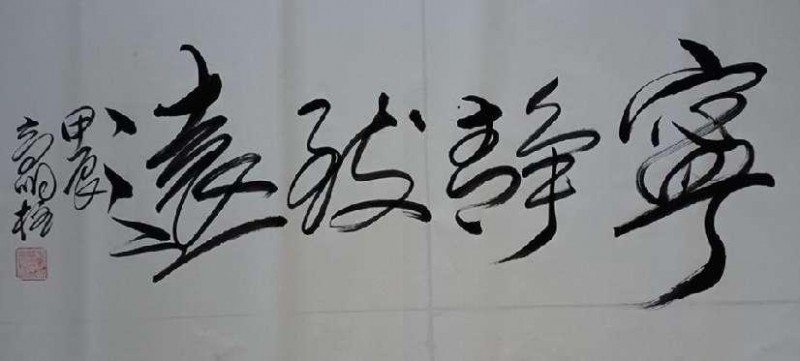 寧靜致遠
甲辰